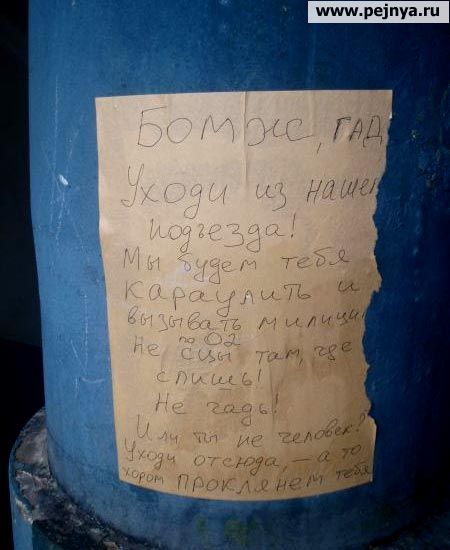 www.pejnya.ru
БОМЖ, ГАД
Уходи из нашег
подъезда!
Мы будем тебя
караулить и
вызывать милици
по 02
Не сцы там, где
спишь!
Не гадь!
Или ты не человек?
Уходи отсюда, – а то
хором ПРОКЛЯНЕМ тебя